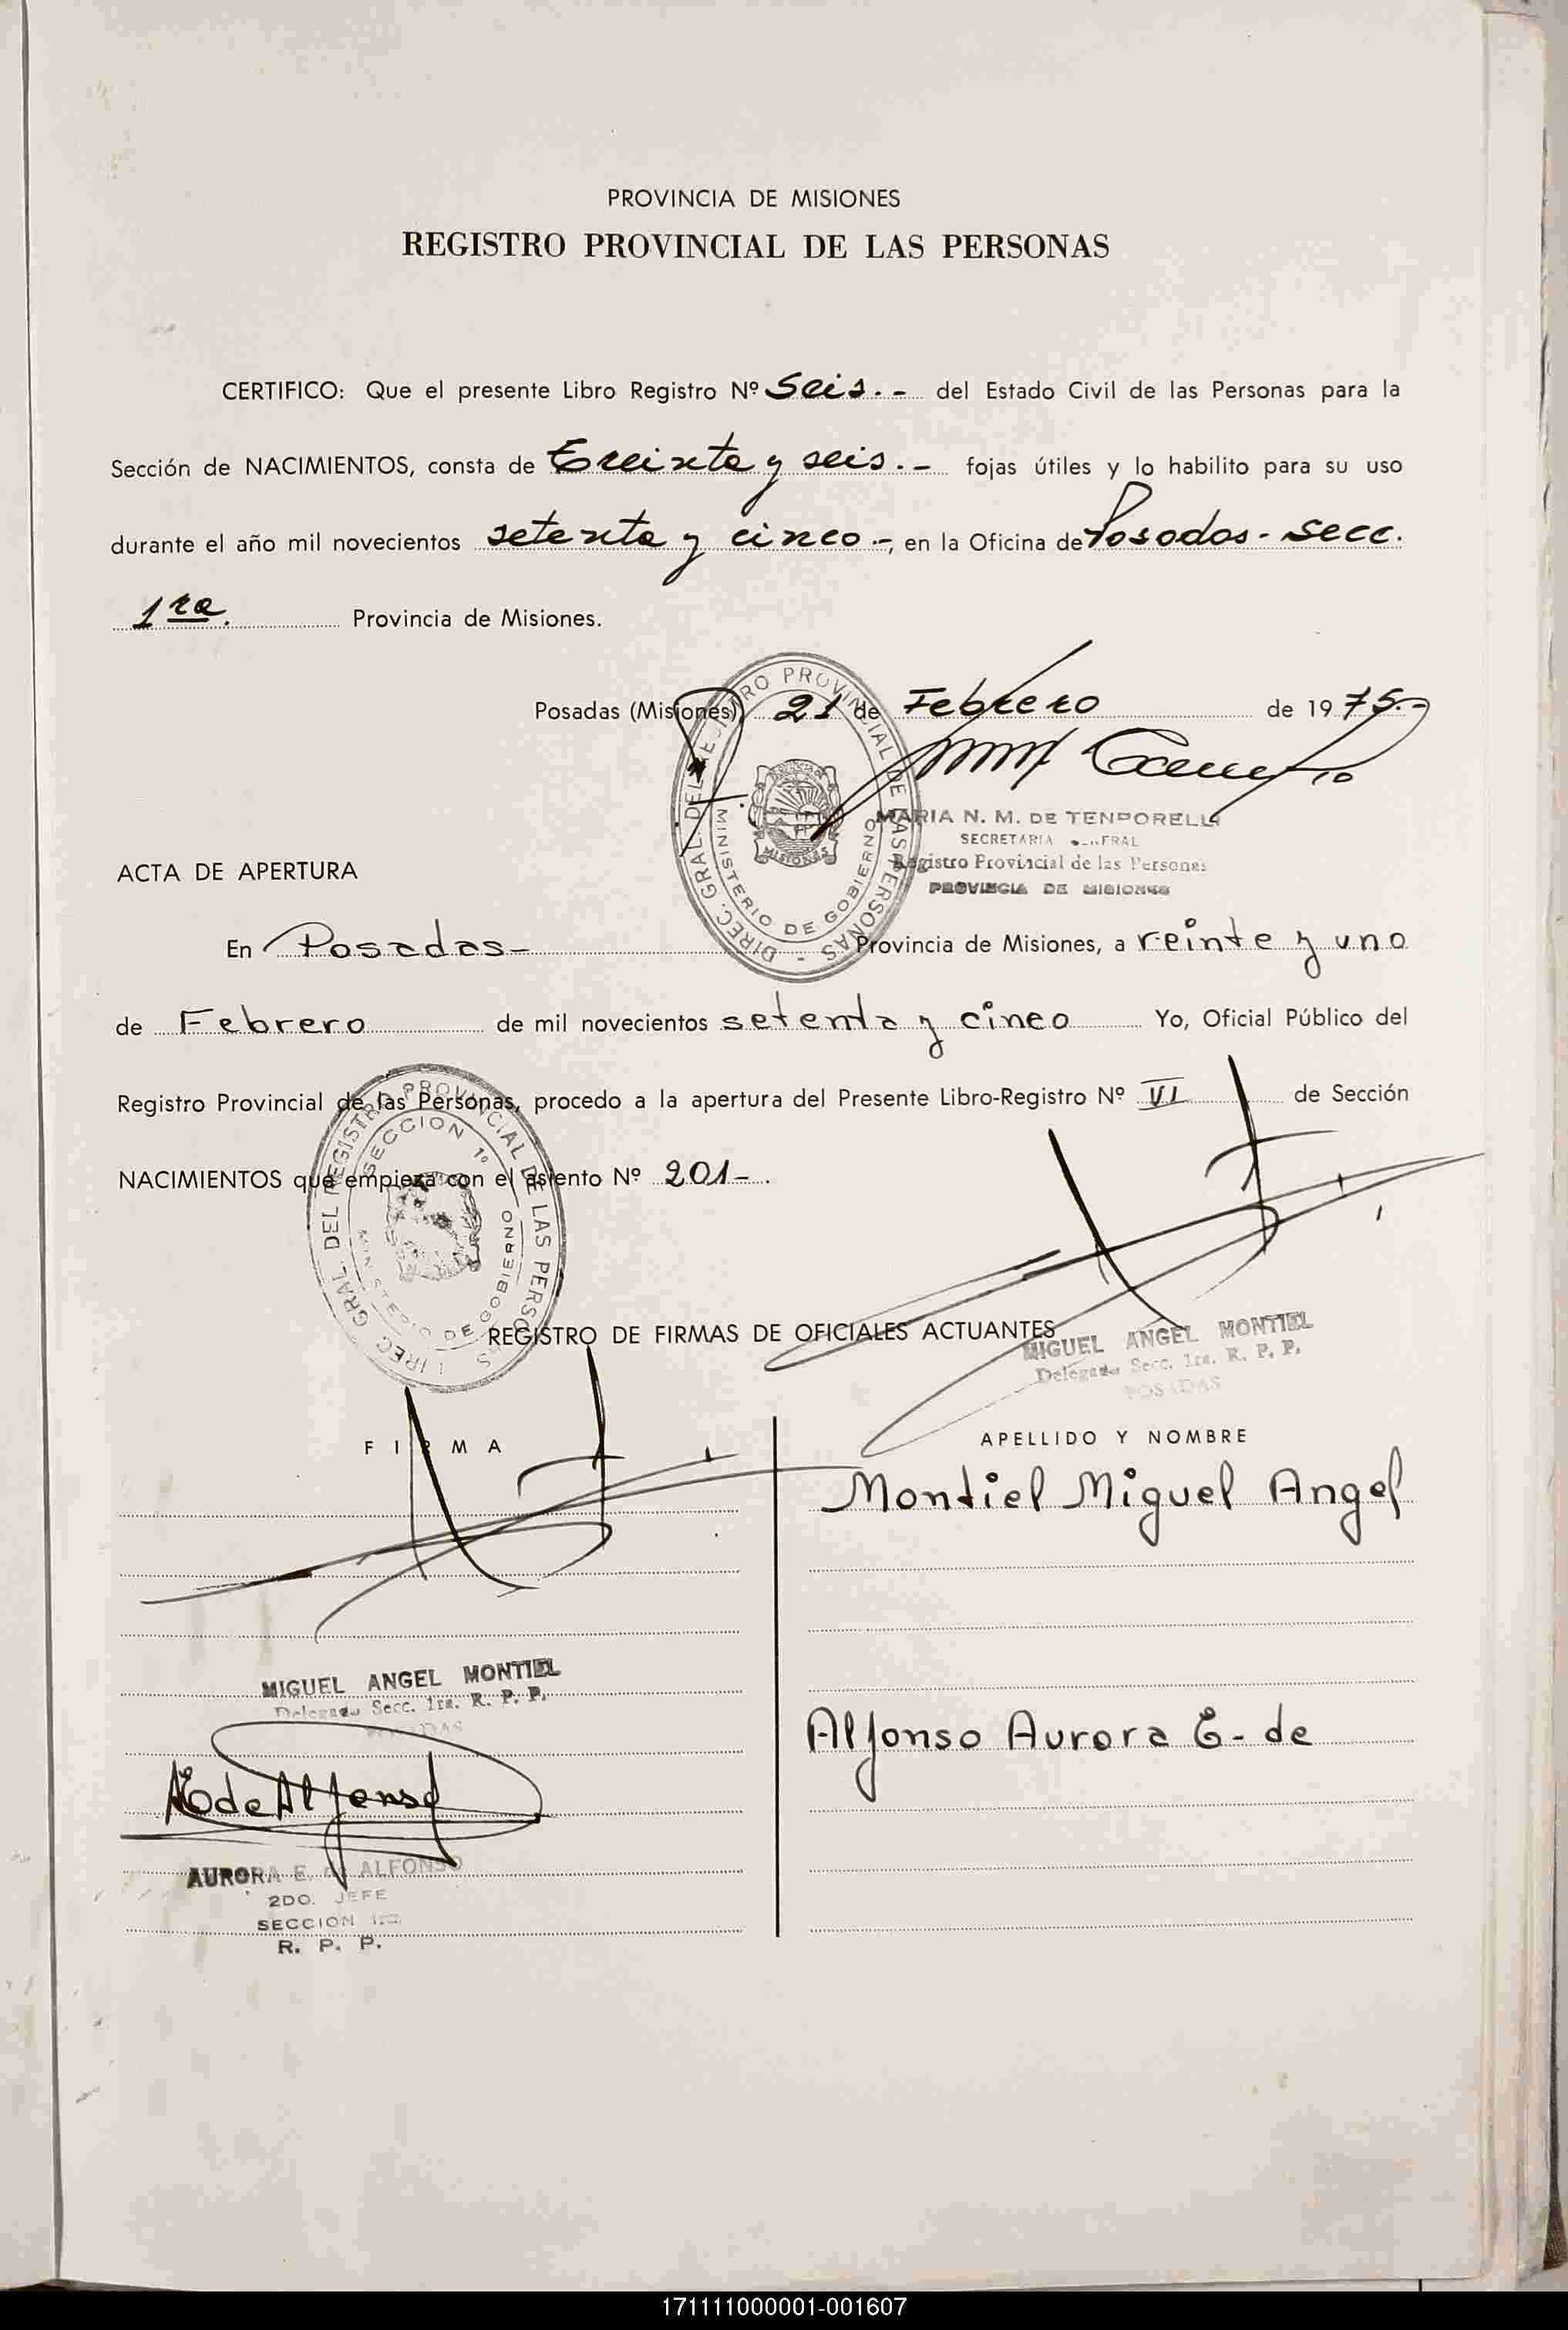 PROVINCIA DE MISIONES
REGISTRO PROVINCIAL DE LAS PERSONAS
CERTIFICO: Que el presente Libro Registro Nº Seis.- del Estado Civil de las Personas para la
Sección de NACIMIENTOS, consta de Treinta y seis.- fojas útiles y lo habilito para su uso
durante el año mil novecientos setenta y cinco-, en la Oficina de Posadas-Secc.
1ra. Provincia de Misiones.
Posadas (Misiones) 21 de Febrero de 1975.-
DIREC. GRAL. DEL REGISTRO PROVINCIAL DE LAS PERSONAS -
MINISTERIO DE GOBIERNO
MISIONES
MARIA N. M. DE TEMPORELLI
SECRETARIA
Registro Provincial de las Personas
PROVINCIA DE MISIONES
ACTA DE APERTURA
En Posadas- Provincia de Misiones, a veinte y uno
de Febrero de mil novecientos setenta y cinco Yo, Oficial Público del
Registro Provincial de las Personas, procedo a la apertura del Presente Libro-Registro Nº VI de Sección
NACIMIENTOS que empieza con el asiento Nº 201-.
DIREC. GRAL. DEL REGISTRO PROVINCIAL DE LAS PERSONAS
SECCION 1º
MINISTERIO DE GOBIERNO
REGISTRO DE FIRMAS DE OFICIALES ACTUANTES
MIGUEL ANGEL MONTIEL
Delegado Secc. 1ra. R. P. P.
POSADAS
FIRMA
APELLIDO Y NOMBRE
Montiel Miguel Angel
MIGUEL ANGEL MONTIEL
Delegado Secc. 1ra. R. P. P.
POSADAS
Alfonso Aurora E- de
AE de Alfonso
AURORA E. de ALFONSO
2DO. JEFE
SECCION 1ra
R. P. P.
171111000001-001607